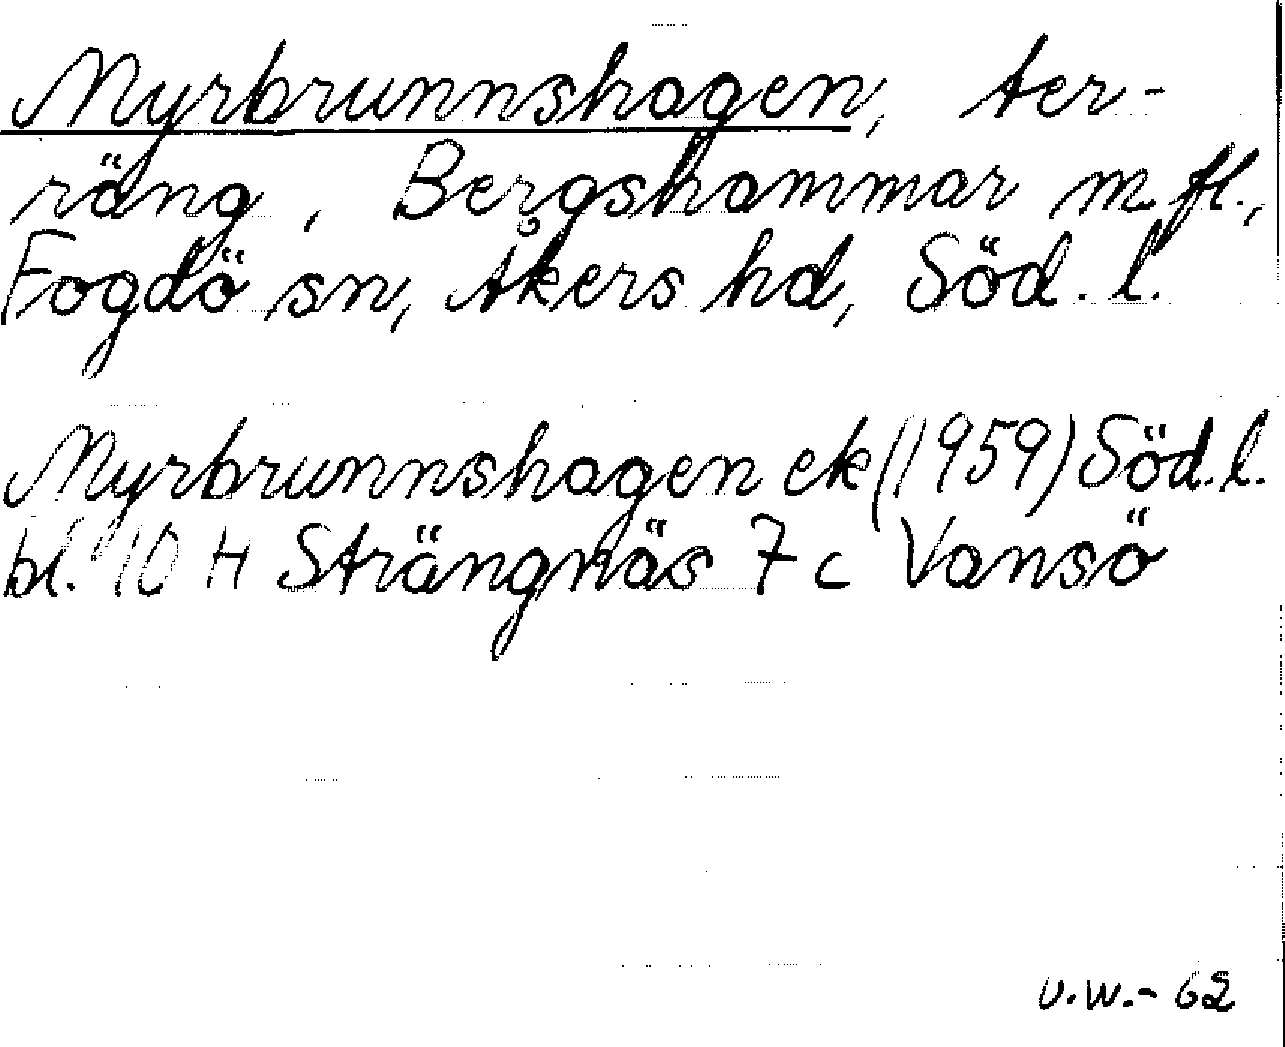 Myrbrunnshagen, ter-
räng, Bergshammar m.fl.,
Fogdö sn, Åkers hd, Söd. l.
Myrbrunnshagen ek (1959) Söd. l.
bl. 10 H Strängnäs 7 c Vansö
U.W.-62